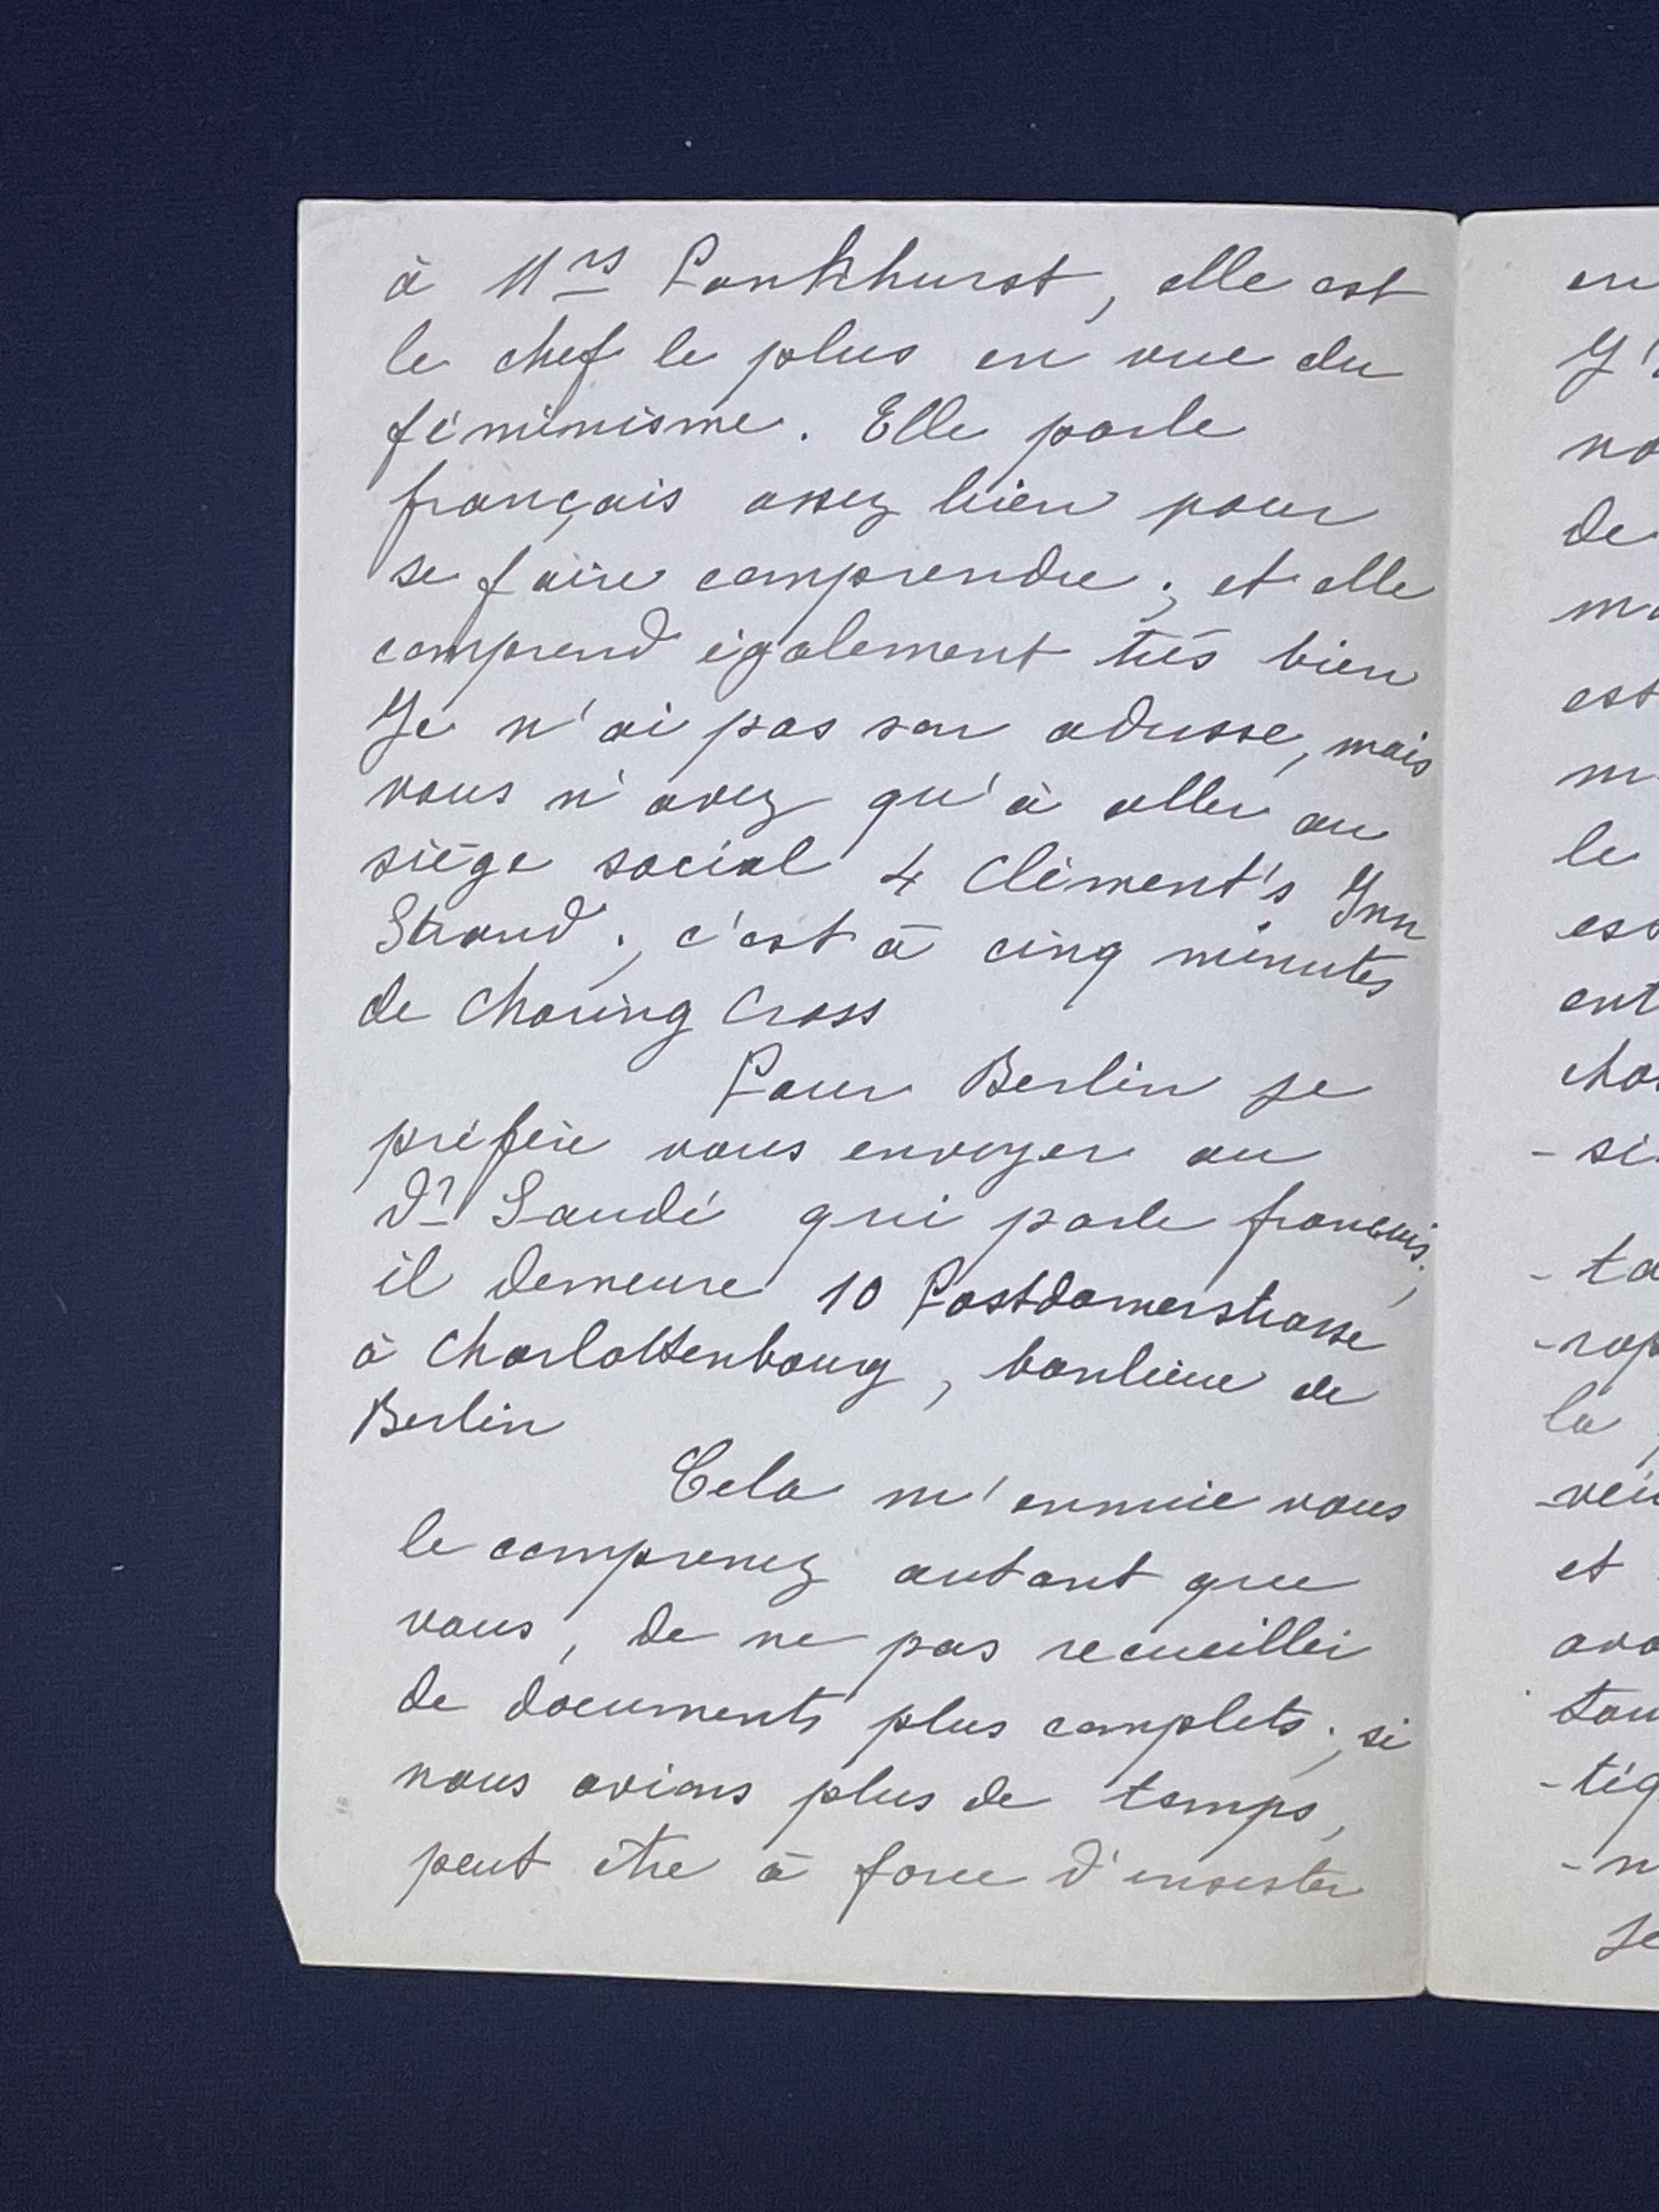 à Mrs Pankhurst, elle est
le chef le plus en vue du
féminisme. Elle parle
français assez bien pour
se faire comprendre ; et elle
comprend également très bien
Je n'ai pas son adresse, mais
vous n'avez qu'à aller au
siège social 4 Clément's Inn
Strand ; c'est à cinq minutes
de Charing Cross
Pour Berlin je
préfère vous envoyer au
Dr Saudé qui parle français ;
il demeure 10 Postdamerstrasse
à Charlottenbourg, banlieue de
Berlin
Cela m'ennuie vous
le comprenez autant que
vous, de ne pas recueillir
de documents plus complets ; si
nous avions plus de temps,
peut être à force d'insister
en
J'
no
de
ma
est
m
le
ess
ent
cho
- si
- ta
- rap
la
- veu
et
ava
tou
- tiq
- n
Je